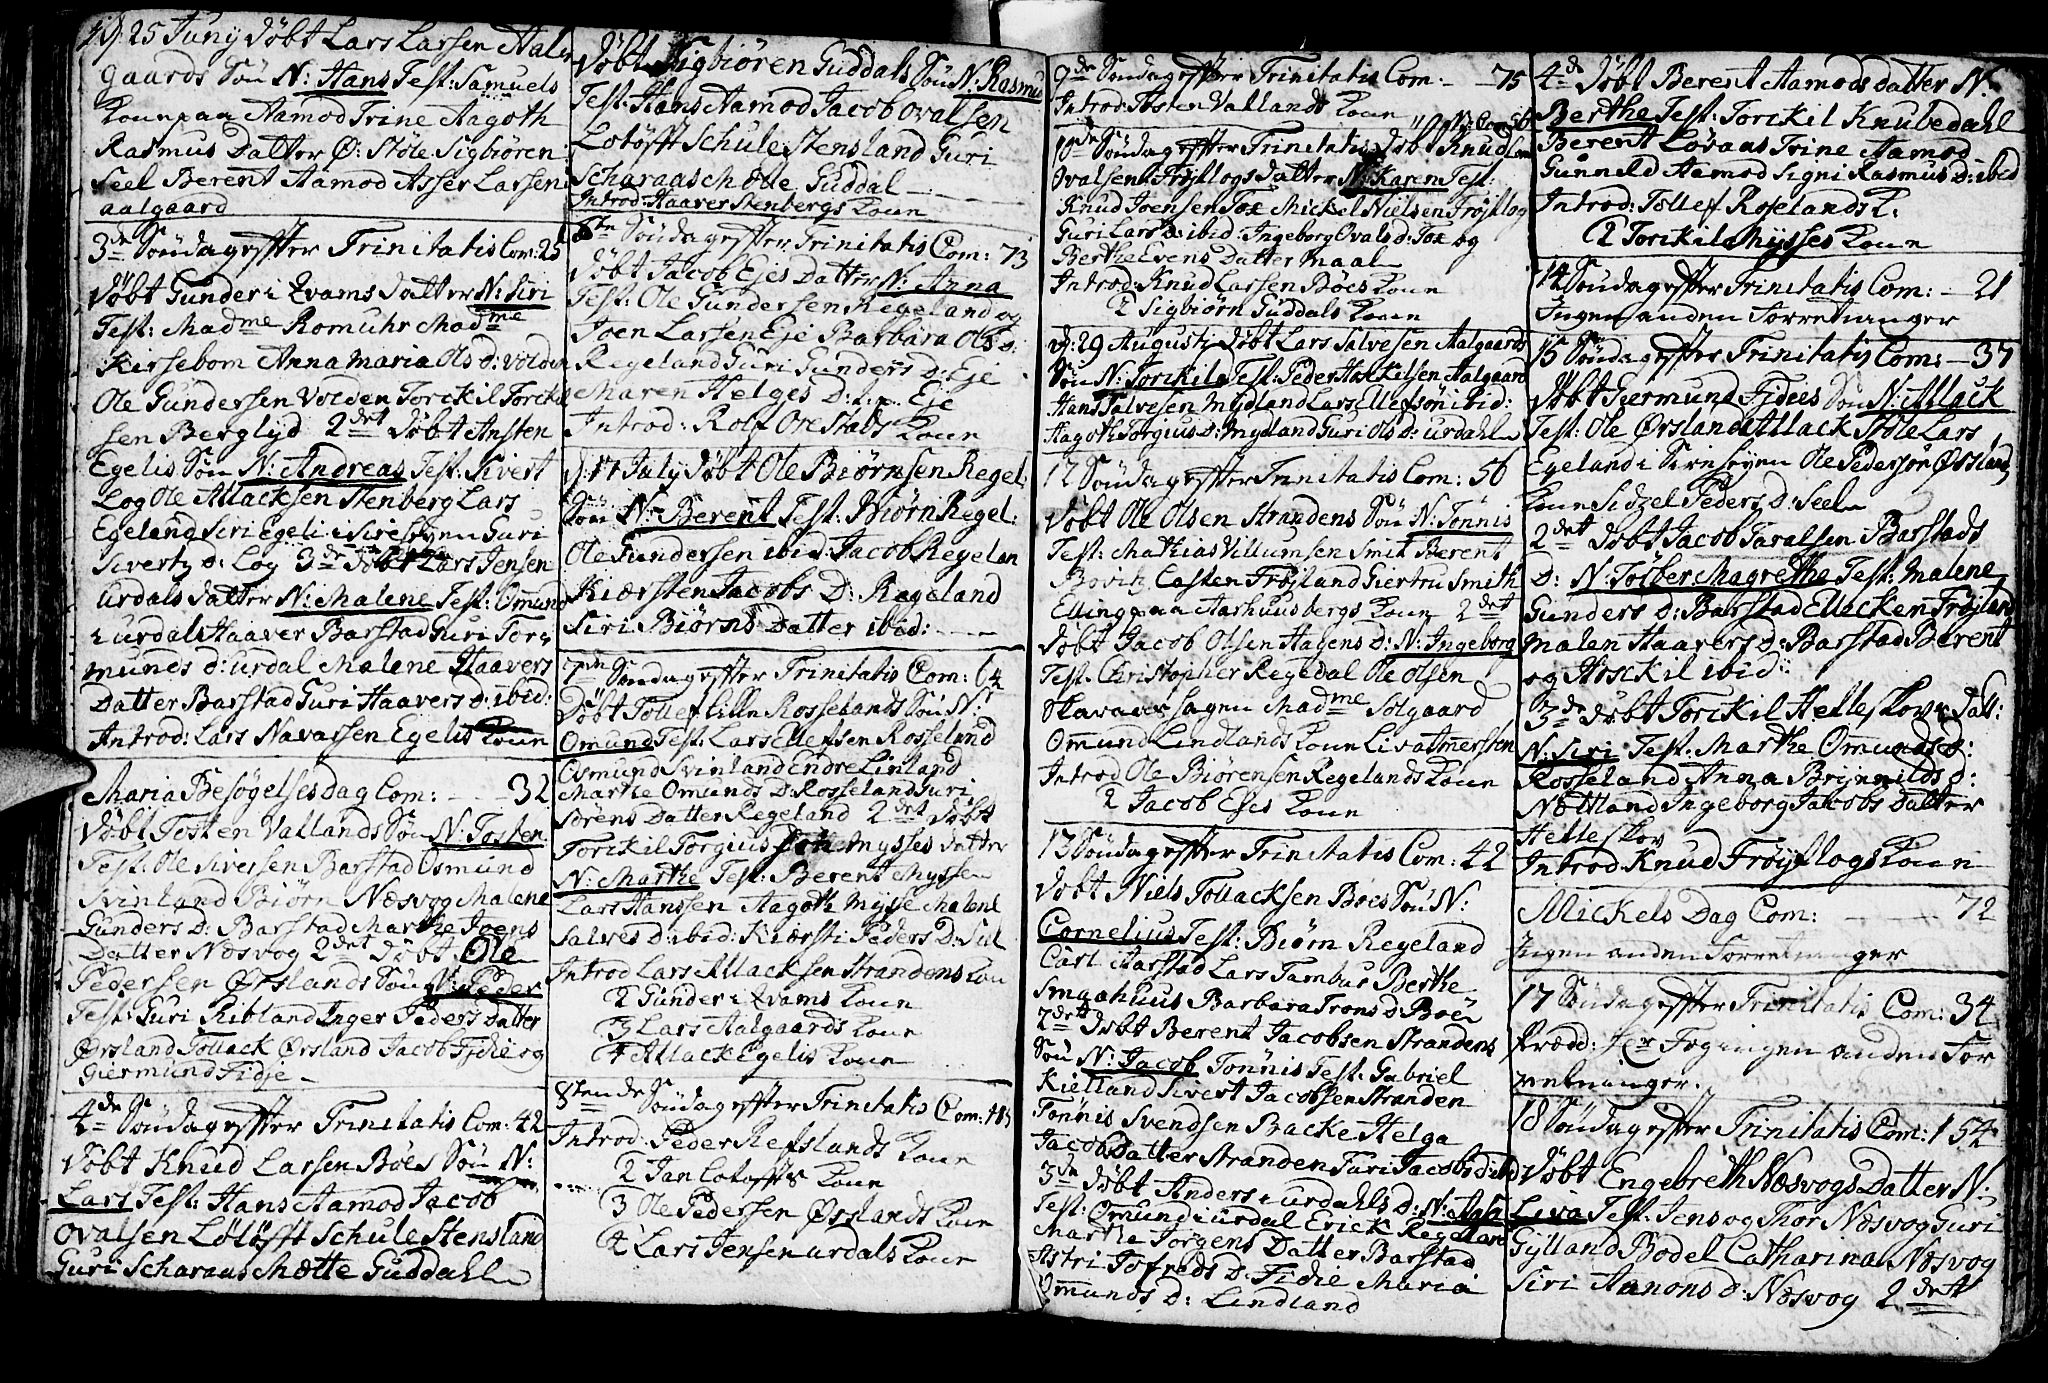 d: 25 Junij døbt Lars Larsen Aal
gaards Søn N: Hans Test: Samuels
Kone paa Aamod Trine Aagoth
Rasmus Datter Ø: Støle Sigbiören
Seel Berent Aamod Asser Larsen
aalgaard
3de Søndag effter Trinitatis Com: 25
døbt Gunder i Qvams datter N: Siri
Test: Madme Romuhr Madme
Kersebom Anna Maria Ols d: volden
Ole Gundersen Volden Torckil Torckil
sen Berglyd 2det døbt Ansten
Egelis Søn N: Andreas Test: Sivert
Log Ole Atlacksen Stenberg Lars
Egeland Siri Egeli i Siresøyen Guri
Siverts d: Log 3de døbt Lars Jensen
urdals datter N: Malene Test: Omund
i urdal Haaver Barstad Guri Tor
munds d: urdal Malene Haavers
Datter Barstad Guri Haavers d: ibid:
Introd: Lars Navarsen Egelis Kone
Maria Besøgelses Dag Com: - - 32
døbt Tosten Vatlands Søn N: Tosten
Test: Ole Siversen Barstad Osmund
Svinland Biørn Næsvog Malene
Gunders D: Barstad Marthe Joens
Datter Næsvog 2det døbt Ole
Pedersen Ørslands Søn N: Peder
Test: Guri Ribland Inger Peders Datter
Ørsland Tollack Ørsland Jacob Fidie og
Giermund Fidje
4de Søndag effter Trinitatis Com: 42
døbt Knud Larsen Böes Søn N:
Lars Test: Hans Aamod Jacob
Ovalsen Løtöfft Schule Stensland
Guri Scharaas Mette Guddahl
døbt Sigbiören Guddals Søn N: Rasmus
Test: Hans Aamod Jacob Ovalsen
Lotöfft Schule Stensland Guri
Scharaas Mette Guddal
Introd: Haaver Stenbergs Kone
6te Søndag effter Trinitatis Com: 73
døbt Jacob Ejes Datter N: Anna
Test: Ole Gundersen Regeland og
Joen Larsen Eje Barbara Ols D:
Regeland Guri Gunders D: Eje
Maren Helges D: Eje
Introd: Rolf Orstads Kone
d: 17 July døbt Ole Biørnsen Regel:
Søn N: Berent Test: Biørn Regel:
Ole Gundersen ibid: Jacob Regelan
Kiærsten Jacobs D: Regeland
Siri Biørns Datter ibid:
7de Søndag effter Trinitatis Com: 64
Døbt Tollef Lille Rosselands Søn N:
Omund Test: Lars Ellefsen Rosseland
Osmund Svinland Endre Linland
Marthe Omunds D: Rosseland Guri
Sörens Datter Regeland 2det døbt
Torckil Torgius Mysses datter
N: Marthe Test: Berent Myssen
Lars Hanssen Aagoth Mysse Malene
Salves D: ibid: Kiærsti Peders D: Sul
Introd Lars Atlacksen Strandens Kone
2 Gunder i Qvams Kone
3 Lars Aalgaards Kone
4 Atlack Egelis Kone
8tende Søndag effter Trinitatis Com: 113
Introd: Peder Refslands Kone
2 Jan Lotoffts Kone
3 Ole Pedersen Ørslands Kone
4 Lars Jensen urdals Kone
9de Søndag effter Trinitatis Com: - 75
Introd: Tosten Vatlands Kone
10de Søndag effter Trinitatis døbt Knud
Ovalsen Frøjflogs datter N: Karen Test:
Knud Joensen Tox Mickel Nielsen Frøjflog
Guri Lars D: ibid: Ingeborg Ovals D: Tox og
Berthe Evens Datter Maal
Introd: Knud Larsen Böes Kone
2 Sigbiørn Guddals Kone
d: 29 Augusti døbt Lars Salvesen Aalgaards
Søn N: Torckild Test: Peder Aalgaard
Hans Salvesen Mydland Lars Ellefsøn ibid:
Aagoth Torgius D: Mydland Guri Ols D: urdahl
12 Søndag effter Trinitatis Com: 56
døbt Ole Olsen Strandens Søn N: Tönnis
Test: Mathias Villumsen Smit Berent
Bovitz Casten Frøjland Giertru Smith
Elling paa Aarhuusbergs Kone 2det
døbt Jacob Olsen Hagens D: N: Ingeborg
Test: Christopher Regedal Ole Olsen
Skaraas Madme Solgaard
Omund Lindlands Kone Liva
Introd Ole Biørensen Regelands Kone
2 Jacob Ejes Kone
13 Søndag effter Trinitatis Com: 42
døbt Niels Tollacksen Boes Søn N:
Cornelius Test: Biørn Regeland
Carl Aarstad Lars Tambur Berthe
Smaahuus Barbara Trons D: Boe
2det døbt Berent Jacobsen Strandens
Søn N: Jacob Tönnis Test: Gabriel
Kielland Sivert Jacobsen Stranden
Tönnis Svendsen Backe Helga
Jacobs Datter Stranden Turi Jacobs d: ibid
3de døbt Anders i urdahls D: N: Aasa
Test: Omund i urdal Erick Regeland
Marthe Jørgens Datter Barstad
Astri Tofreds D: Fidie Maria
Omunds D: Lindland
4de døbt Berent Aamods datter N:
Berthe Test: Torckil Knubedahl
Berent Løvaas Trine Aamod
Gunneld Aamod Signi Rasmus D: ibid
Introd: Tollef Roselands K:
2 Torckil Mysses Kone
14 Søndag effter Trinitatis Com: - 21
Ingen anden Forretninger
15 Søndag effter Trinitatis Com: - 37
døbt Giermund Fidies Søn N: Atlack
Test: Ole Ørsland Atlack Støle Lars
Egeland i Siresøyen Ole Pedersøn Ørslands
Kone Sidzel Peders D: Seel
2det døbt Jacob Taralsen Barstads
D: N: Tolber Magrethe Test: Malene
Gunders D: Barstad Ellecken Frøjland
Malen Haavers D: Barstad Berent
og ibid:
3de døbt Torckil Helleskovs Datt:
N: Siri Test: Marthe Omunds d:
Rosseland Anna Brynnilds d:
Nættland Ingeborg Jacobs Datter
Helleskov
Introd: Knud Frøjflogs Kone
Mickels Dag Com: - - 72
Ingen anden Forretninger
17 Søndag effter Trinitatis Com: 34
Præd: Her Fog ingen anden For
retninger.
18 Søndag effter Trinitatis Com: 154
døbt Engebreth Næsvogs Datter N:
Liva Test: Jens og Thor Næsvog Guri
Gylland Bodel Catharina Næsvog
Siri Aanons d: Næsvog 2det